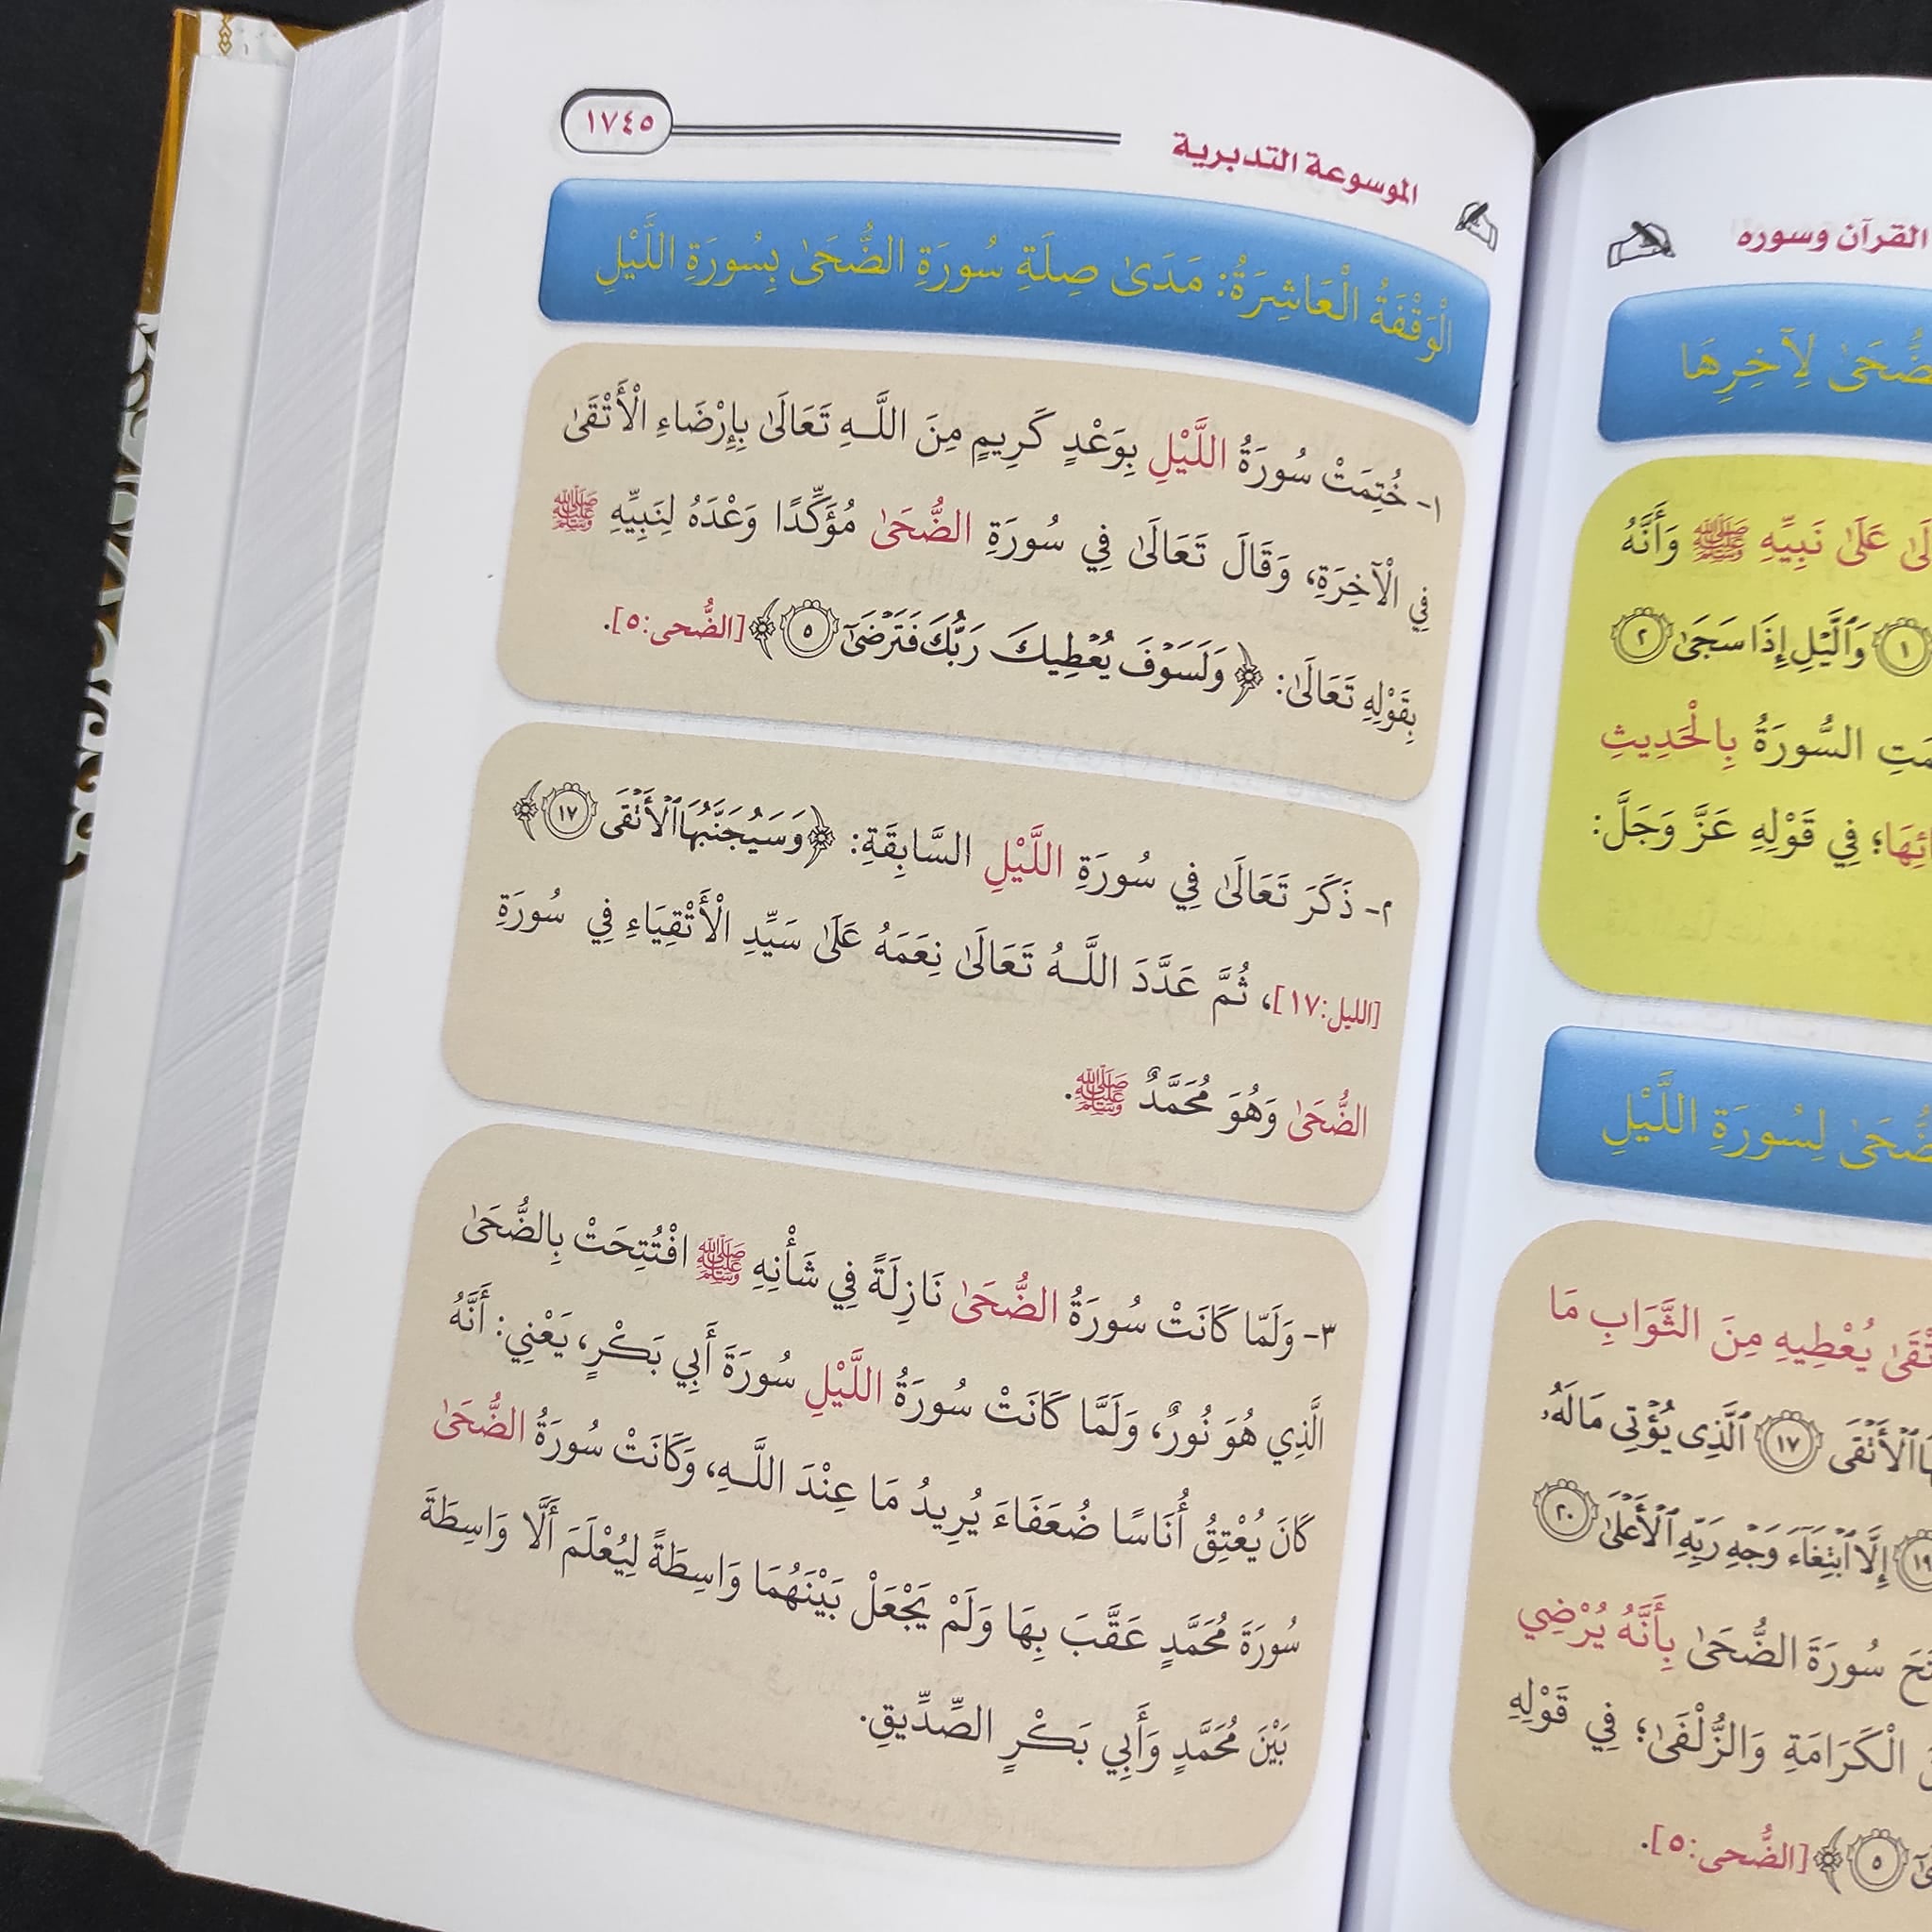 الموسوعة التدبرية
١٧٤٥
الْوَقْفَةُ الْعَاشِرَةُ: مَدَىٰ صِلَةِ سُورَةِ الضُّحَىٰ بِسُورَةِ اللَّيْلِ
١- خُتِمَتْ سُورَةُ اللَّيْلِ بِوَعْدٍ كَرِيمٍ مِنَ اللَّهِ تَعَالَىٰ بِإِرْضَاءِ الْأَتْقَىٰ
فِي الْآخِرَةِ، وَقَالَ تَعَالَىٰ فِي سُورَةِ الضُّحَىٰ مُؤَكِّدًا وَعْدَهُ لِنَبِيِّهِ ﷺ
بِقَوْلِهِ تَعَالَىٰ: ﴿وَلَسَوْفَ يُعْطِيكَ رَبُّكَ فَتَرْضَىٰٓ ٥﴾ [الضُّحى:٥].
٢- ذَكَرَ تَعَالَىٰ فِي سُورَةِ اللَّيْلِ السَّابِقَةِ: ﴿وَسَيُجَنَّبُهَا ٱلْأَتْقَى ١٧﴾
[الليل:١٧]، ثُمَّ عَدَّدَ اللَّهُ تَعَالَىٰ نِعَمَهُ عَلَىٰ سَيِّدِ الْأَتْقِيَاءِ فِي سُورَةِ
الضُّحَىٰ وَهُوَ مُحَمَّدٌ ﷺ.
٣- وَلَمّا كَانَتْ سُورَةُ الضُّحَىٰ نَازِلَةً فِي شَأْنِهِ ﷺ افْتُتِحَتْ بِالضُّحَىٰ
الَّذِي هُوَ نُورٌ، وَلَمَّا كَانَتْ سُورَةُ اللَّيْلِ سُورَةَ أَبِي بَكْرٍ، يَعْنِي: أَنَّهُ
كَانَ يُعْتِقُ أُنَاسًا ضُعَفَاءَ يُرِيدُ مَا عِنْدَ اللَّهِ، وَكَانَتْ سُورَةُ الضُّحَىٰ
سُورَةَ مُحَمَّدٍ عَقَّبَ بِهَا وَلَمْ يَجْعَلْ بَيْنَهُمَا وَاسِطَةً لِيُعْلَمَ أَلَّا وَاسِطَةَ
بَيْنَ مُحَمَّدٍ وَأَبِي بَكْرٍ الصِّدِّيقِ.
القرآن وسوره
لِآخِرِهَا
عَلَىٰ نَبِيِّهِ ﷺ وَأَنَّهُ
١ وَٱلَّيْلِ إِذَا سَجَىٰ ٢
السُّورَةُ بِالْحَدِيثِ
فِي قَوْلِهِ عَزَّ وَجَلَّ:
لِسُورَةِ اللَّيْلِ
يُعْطِيهِ مِنَ الثَّوَابِ مَا
ٱلْأَتْقَى ١٧ ٱلَّذِى يُؤْتِى مَالَهُۥ
١٩ إِلَّا ٱبْتِغَآءَ وَجْهِ رَبِّهِ ٱلْأَعْلَىٰ ٢٠
سُورَةَ الضُّحَىٰ بِأَنَّهُ يُرْضِي
الْكَرَامَةِ وَالزُّلْفَىٰ؛ فِي قَوْلِهِ
٥﴾ [الضُّحى:٥].